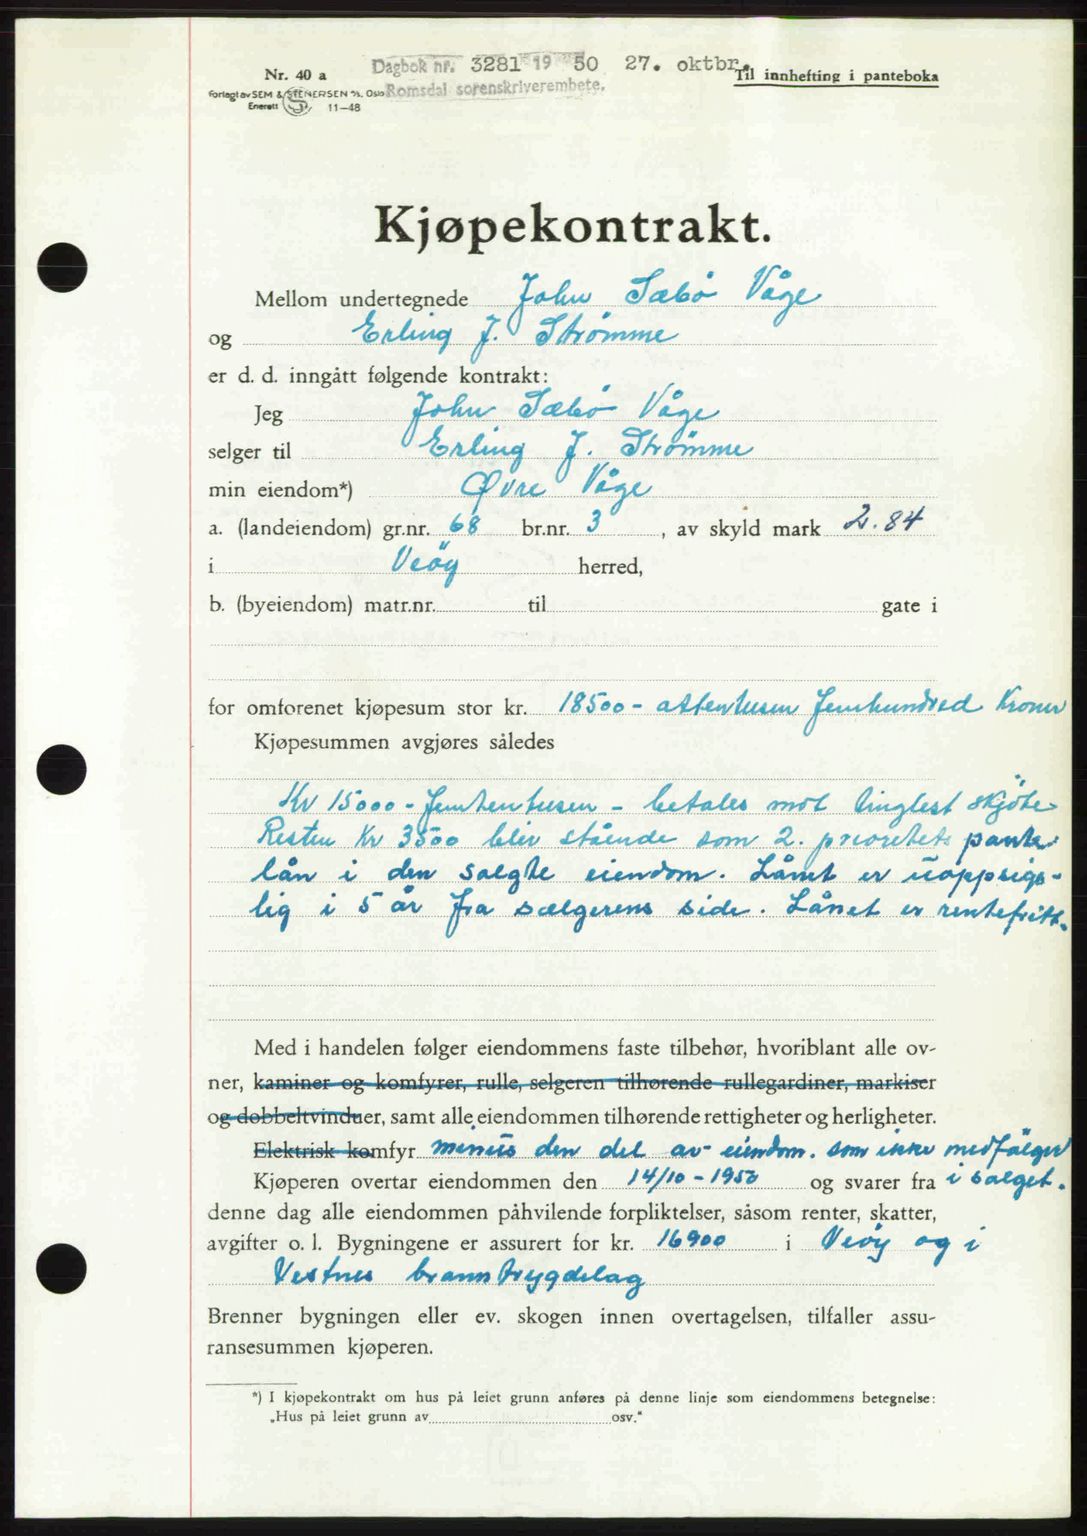 Nr. 40 a
Forlagt av SEM & STENERSEN A/S. Oslo
Enerett 11-48
Dagbok nr. 3281 19 50 27. oktbr.
Romsdal sorenskriverembete.
Til innhefting i panteboka
Kjøpekontrakt.
Mellom undertegnede John Sæbö Våge
og Erling J. Strömme
er d. d. inngått følgende kontrakt:
Jeg John Sæbö Våge
selger til Erling J. Strömme
min eiendom*) Øvre Våge
a. (landeiendom) gr.nr. 68 br.nr. 3, av skyld mark 2.84
i Veöy herred,
b. (byeiendom) matr.nr. til gate i
for omforenet kjøpesum stor kr. 18500 - attentusen femhundred Kroner
Kjøpesummen avgjøres således
Kr 15000 - femtentusen - betales mot tinglest skjöte
Resten Kr 3500 blir stående som 2. prioritets pante-
lån i den solgte eiendom. Lånet er uoppsigs-
lig i 5 år fra sælgerens side. Lånet er rentefritt.
Med i handelen følger eiendommens faste tilbehør, hvoriblant alle ov-
ner, kaminer og komfyrer, rulle, selgeren tilhørende rullegardiner, markiser
og dobbeltvinduer, samt alle eiendommen tilhørende rettigheter og herligheter.
Elektrisk komfyr minus den del av eiendom. som ikke medfölger
Kjøperen overtar eiendommen den 14/10 - 1950 og svarer fra i salget.
denne dag alle eiendommen påhvilende forpliktelser, såsom renter, skatter,
avgifter o. l. Bygningene er assurert for kr. 16900 i Veöy og i
Vestnes branntrygdelag
Brenner bygningen eller ev. skogen innen overtagelsen, tilfaller assu-
ransesummen kjøperen.
*) I kjøpekontrakt om hus på leiet grunn anføres på denne linje som eiendommens betegnelse:
„Hus på leiet grunn av osv.“